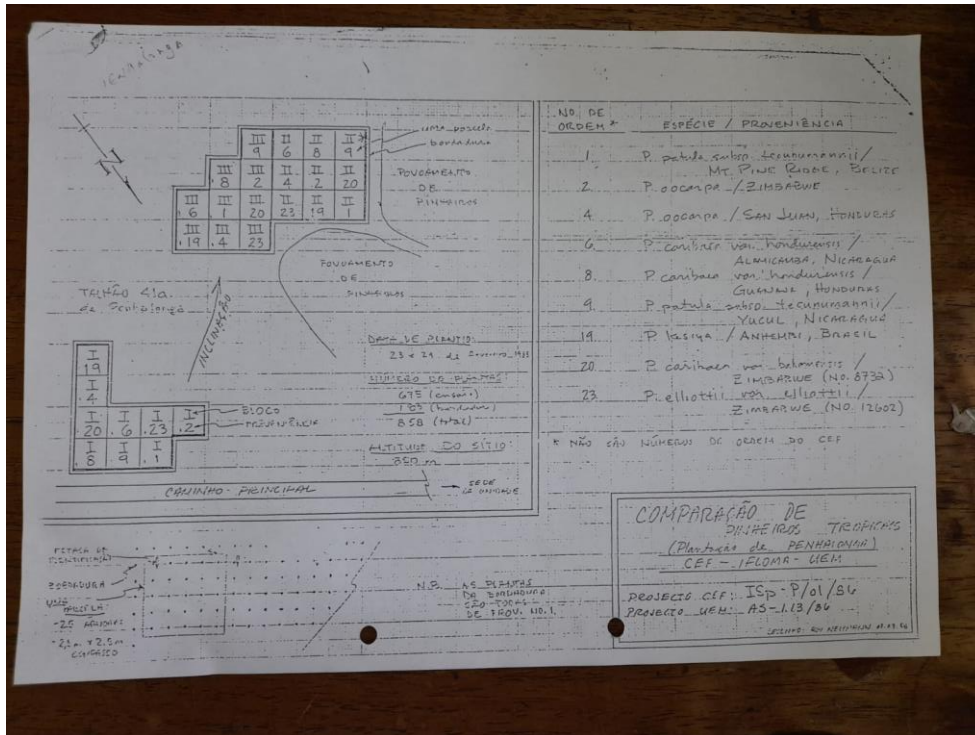 III II II II*
9 6 8 9
III III II II II
8 2 4 2 20
III III III II II II
6 1 20 23 19 1
III III III
.19 .4 23
uma parcela
bordadura
POVOAMENTO
DE
PINHEIROS
POVOAMENTO
DE
PINHEIROS
TALHÃO 41a.
INCLINAÇÃO
I
19
I
.4
I I I I
.20 .6 .23 .2
I I I
8 9 1
BLOCO
PROVENIÊNCIA
DATA DE PLANTIO:
NÚMERO DE PLANTAS:
675 (ensaio)
183 (bordadura)
858 (total)
ALTITUDE DO SÍTIO:
CAMINHO PRINCIPAL
SEDE
DA UNIDADE
BORDADURA
UMA
PARCELA:
-25 ÁRVORES
N.B. AS PLANTAS
DA BORDADURA
SÃO TODAS
DE PROV. NO. 1.
NO. DE
ORDEM * ESPÉCIE / PROVENIÊNCIA
1 P. patula subsp. tecunumannii /
MT. PINE RIDGE, BELIZE
2 P. oocarpa / ZIMBABWE
4 P. oocarpa / SAN JUAN, HONDURAS
6 P. caribaea var. hondurensis /
ALAMICAMBA, NICARAGUA
8 P. caribaea var. hondurensis /
GUANAJA, HONDURAS
9 P. patula subsp. tecunumannii /
YUCUL, NICARAGUA
19 P. kesiya / ANHEMBI, BRASIL
20 P. caribaea var. bahamensis /
ZIMBABWE (NO. 8732)
23 P. elliottii var. elliottii /
ZIMBABWE (NO. 12602)
* NÃO SÃO NÚMEROS DE ORDEM DO CEF
COMPARAÇÃO DE
PINHEIROS TROPICAIS
(Plantação de PENHALONGA)
CEF - IFLOMA - UEM
PROJECTO CEF: ISp-P/01/86
PROJECTO UEM: AS-1.13/86